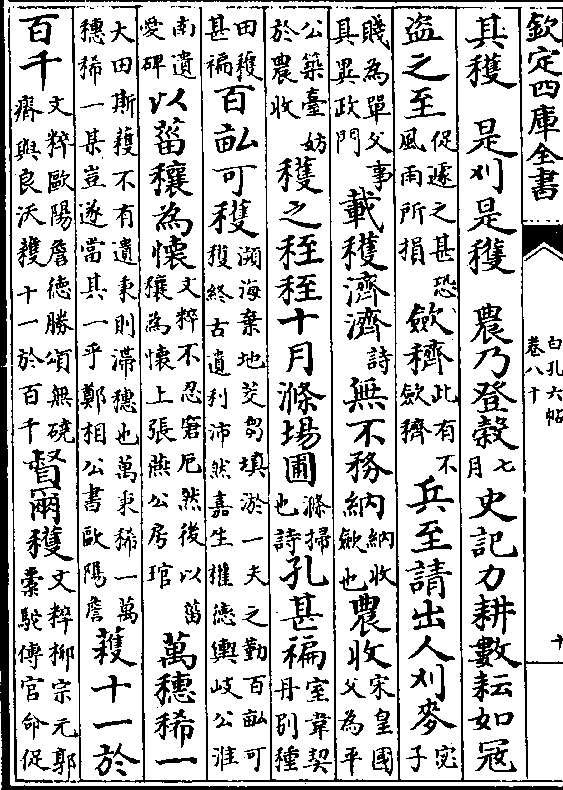 欽定四庫全書
白孔六帖
卷八十
十
其穫 是刈是穫 農乃登穀七月 史記力耕數耘如冦
盜之至促遽之甚恐風雨所損 斂穧此有不斂穧 兵至請出人刈麥宓子
賤為單父事具異政門 載穫濟濟詩 無不務納納收斂也 農收宋皇國父為平
公築臺妨於農收 穫之秷秷 十月滌場圃滌掃也詩 孔甚褊室韋契丹別種
田穫甚褊 百畝可穫瀕海棄地茭芻填淤一夫之勤百畝可穫終古遺利沛然嘉生權德輿岐公淮
南遺愛碑 以菑穰為懷文粹不忍窘戹然後以菑穰為懷上張燕公房琯 萬穗稀一
大田斯穫不有遺秉則滯穗也萬秉稀一萬穗稀一某豈遂當其一乎鄭相公書歐陽詹 穫十一於
百千文粹歐陽詹德勝頌無磽瘠與良沃穫十一於百千 督爾穫文粹柳宗元郭槖駝傳官命促